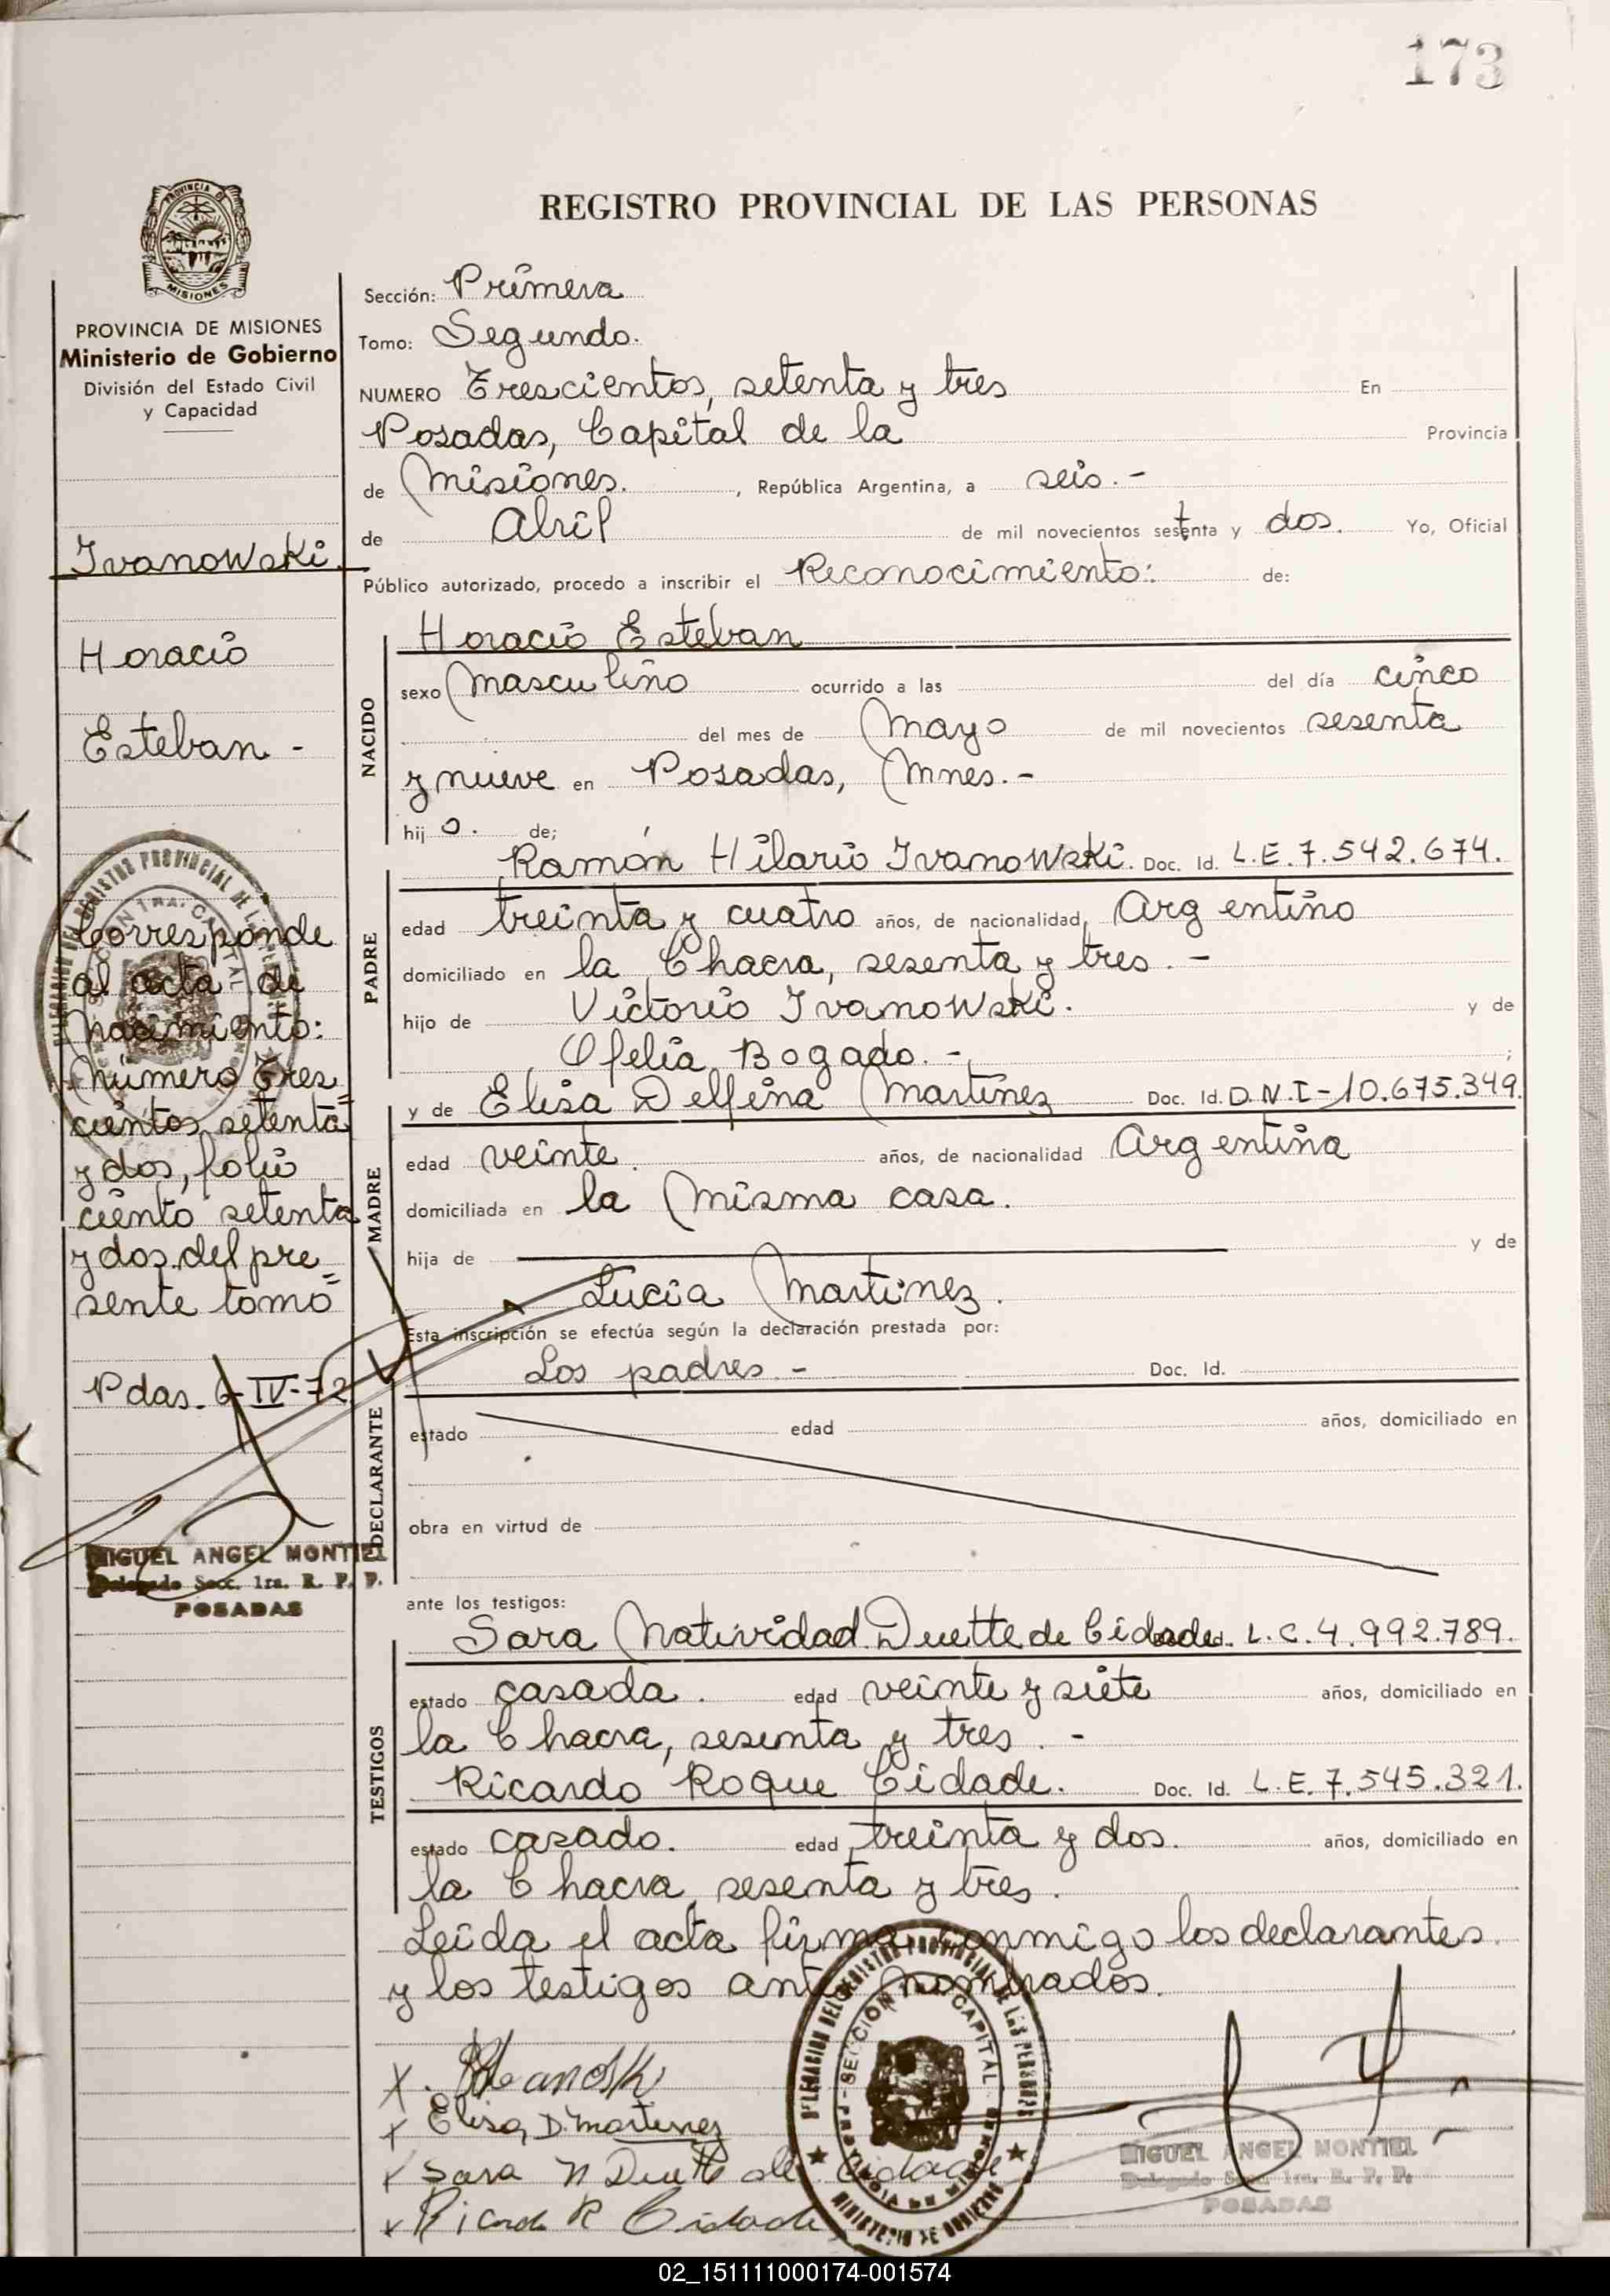 173
REGISTRO PROVINCIAL DE LAS PERSONAS
PROVINCIA DE MISIONES
Ministerio de Gobierno
División del Estado Civil
y Capacidad
Ivanowski
Horacio
Esteban -
Corresponde
al acta de
nacimiento:
Número Tres=
cientos setenta
y dos, folio
ciento setenta
y dos del pre=
sente tomo
Pdas. 6-IV-72
MIGUEL ANGEL MONTIEL
Delegado Secc. 1ra. R. P. P.
POSADAS
Sección: Primera
Tomo: Segundo.
NUMERO Trescientos, setenta y tres En
Posadas, Capital de la Provincia
de Misiones. , República Argentina, a seis.-
de Abril de mil novecientos sesenta y dos. Yo, Oficial
Público autorizado, procedo a inscribir el Reconocimiento: de:
NACIDO
Horacio Esteban
sexo Masculino ocurrido a las del día cinco
del mes de Mayo de mil novecientos sesenta
y nueve en Posadas, Mnes.-
hij o. de;
PADRE
Ramón Hilario Ivanowski. Doc. Id. L.E.7.542.674.
edad treinta y cuatro años, de nacionalidad Argentino
domiciliado en la Chacra, sesenta y tres.-
hijo de Victorio Ivanowski. y de
Ofelia Bogado.- ;
MADRE
y de Elisa Delfina Martinez Doc. Id. D.N.I-10.675.349.
edad veinte. años, de nacionalidad Argentina
domiciliada en la Misma casa.
hija de y de
Lucia Martinez.
DECLARANTE
Esta inscripción se efectúa según la declaración prestada por:
Los padres - Doc. Id.
estado edad años, domiciliado en
obra en virtud de
ante los testigos:
TESTIGOS
Sara Natividad Duette de Cidade. L.C.4.992.789.
estado casada. edad veinte y siete años, domiciliado en
la Chacra, sesenta y tres.-
Ricardo Roque Cidade. Doc. Id. L.E.7.545.321.
estado casado. edad treinta y dos. años, domiciliado en
la Chacra, sesenta y tres.
Leida el acta firma conmigo los declarantes
y los testigos ante nombrados.
X.
x Elisa D. Martinez
x Sara N Duette de Cidade
x Ricardo R Cidade
DELEGACION DEL REGISTRO PROVINCIAL DE LAS PERSONAS
MINISTERIO DE GOBIERNO
MIGUEL ANGEL MONTIEL
Delegado Secc. 1ra. R. P. P.
POSADAS
02_151111000174-001574